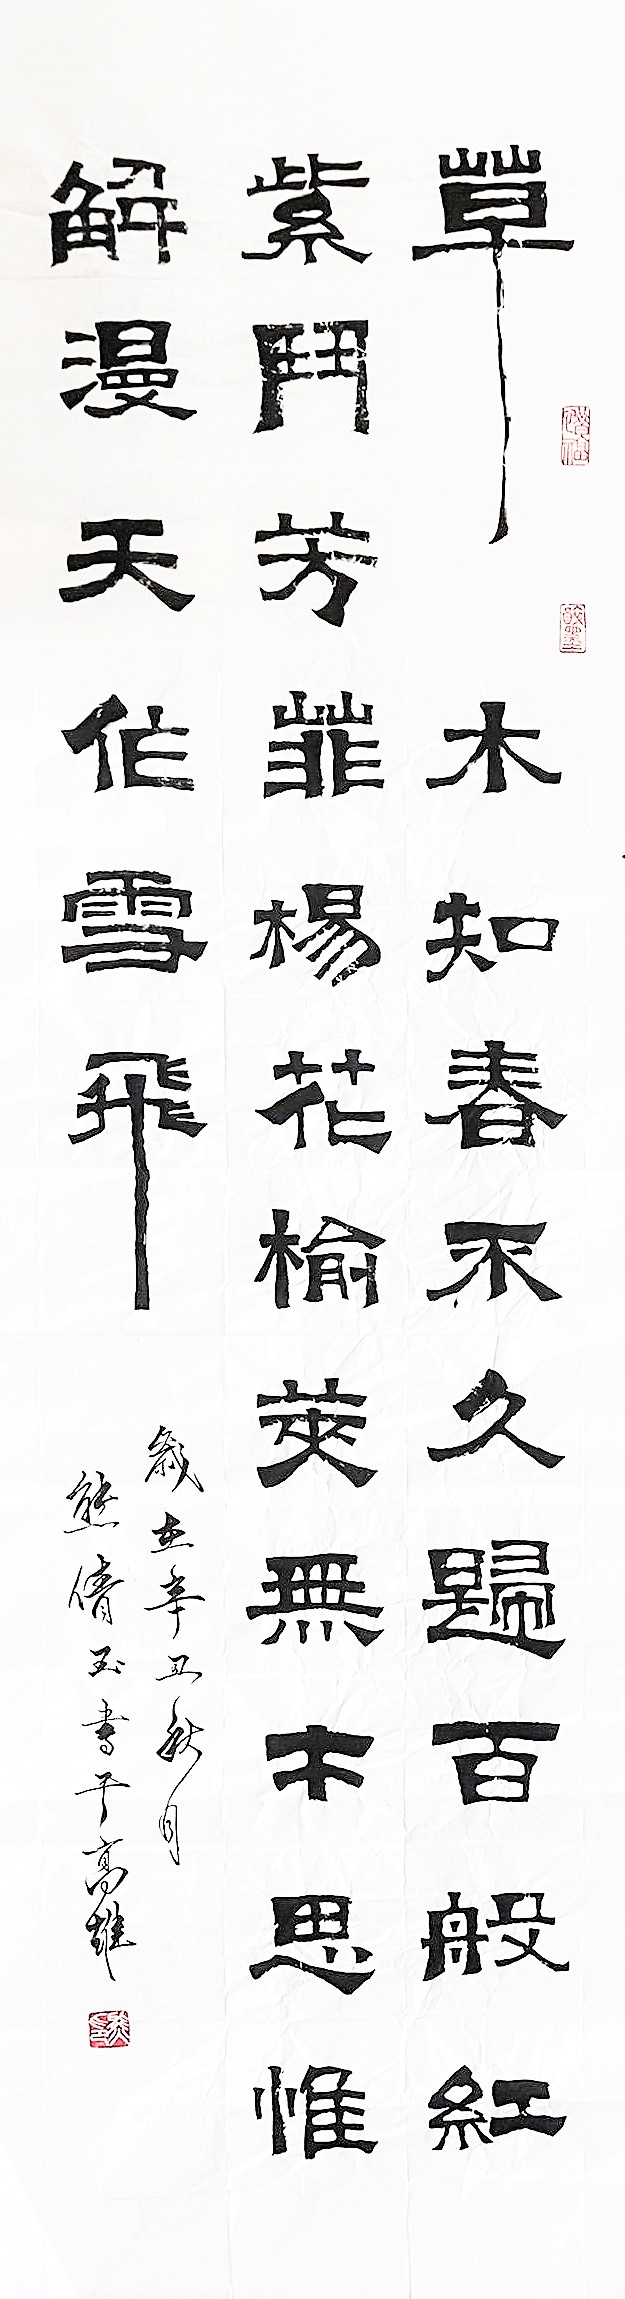 草木知春不久歸百般紅
紫鬥芳菲楊花榆莢無才思惟
解漫天作雪飛
歲在辛丑秋月
熊倩玉書于高雄